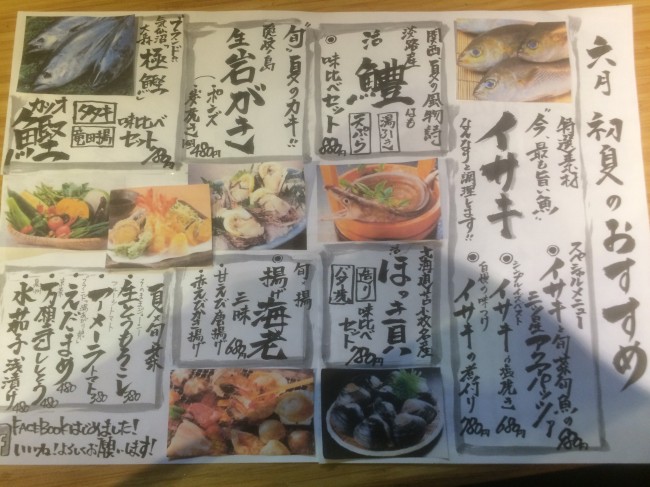 六月 初夏のおすすめ
特選素材
“今、最も旨い魚”
イサキ
なんなりと調理します!!
スペシャルメニュー
イサキと旬菜旬魚の
アクアパッツァ
980円
シンプルイズベスト
イサキの塩焼き
680円
自慢の味つけ
イサキの煮付け
780円
関西 夏の風物詩
淡路産 はも
活 鱧
味比べセット
湯引き
天ぷら
880円
“旬”夏のカキ!!
生岩がき
(・ポン酢
・炭焼き)
480円
ブランド
気仙沼
“極鰹”
カツオ
鰹
タタキ
竜田揚
味比べ
セット
880円
北海道 苫小牧産
活
ほっき貝
造り
バター焼
味比べ
セット
780円
旬揚
揚げ海老
三昧
・甘えび唐揚げ
・赤えび唐揚げ
680円
夏の旬菜
・生とうもろこし
380
・アメーラトマト
580
・えだまめ
480
・万願寺ししとう
480
・水茄子浅漬け
480
FACEBookはじめました!
いいね!よろしくお願いします!